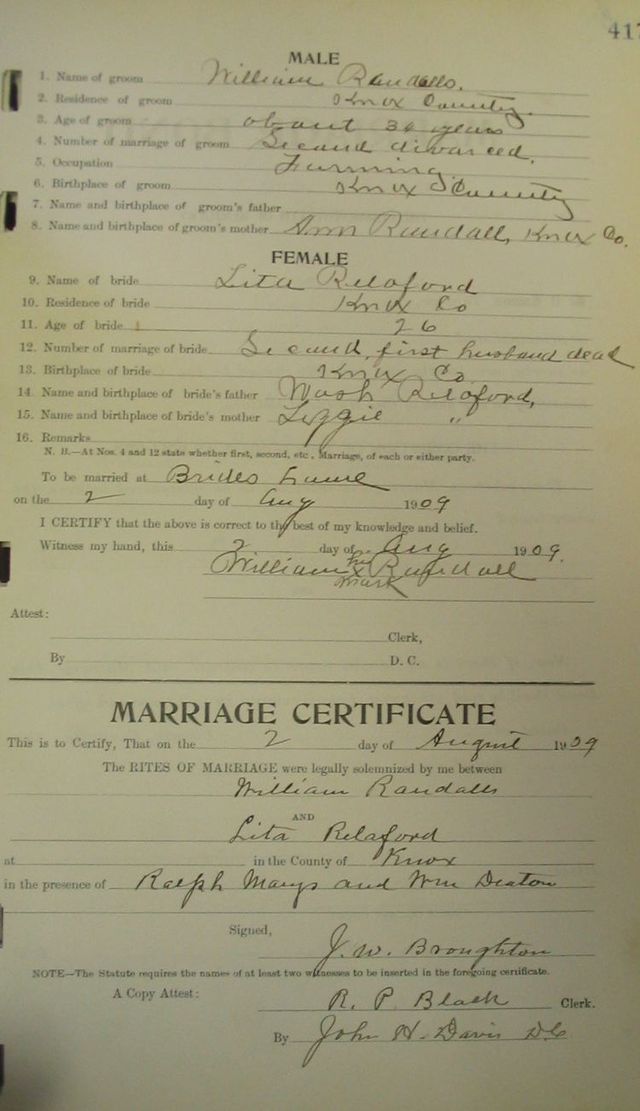 417
MALE
1. Name of groom William Randalls.
2. Residence of groom Knox County.
3. Age of groom about 36 years
4. Number of marriage of groom Second divorced.
5. Occupation Farming.
6. Birthplace of groom Knox County
7. Name and birthplace of groom's father
8. Name and birthplace of groom's mother Ann Randall, Knox Co.
FEMALE
9. Name of bride Lita Relaford
10. Residence of bride Knox Co
11. Age of bride 26
12. Number of marriage of bride Second, first husband dead
13. Birthplace of bride Knox Co
14. Name and birthplace of bride's father Wash Relaford,
15. Name and birthplace of bride's mother "
16. Remarks
N. B.—At Nos. 4 and 12 state whether first, second, etc., Marriage, of each or either party.
To be married at Brides home
on the 2 day of Aug 1909
I CERTIFY that the above is correct to the best of my knowledge and belief.
Witness my hand, this 2 day of Aug 1909.
William his x mark Randall
Attest:
Clerk,
By D. C.
MARRIAGE CERTIFICATE
This is to Certify, That on the 2 day of August 1909
The RITES OF MARRIAGE were legally solemnized by me between
William Randalls
AND
Lita Relaford
at in the County of Knox
in the presence of Ralph Mays and Wm Deaton
Signed,
J. W. Broughton
NOTE—The Statute requires the names of at least two witnesses to be inserted in the foregoing certificate.
A Copy Attest: R. P. Black Clerk.
By John H. Davis D.C